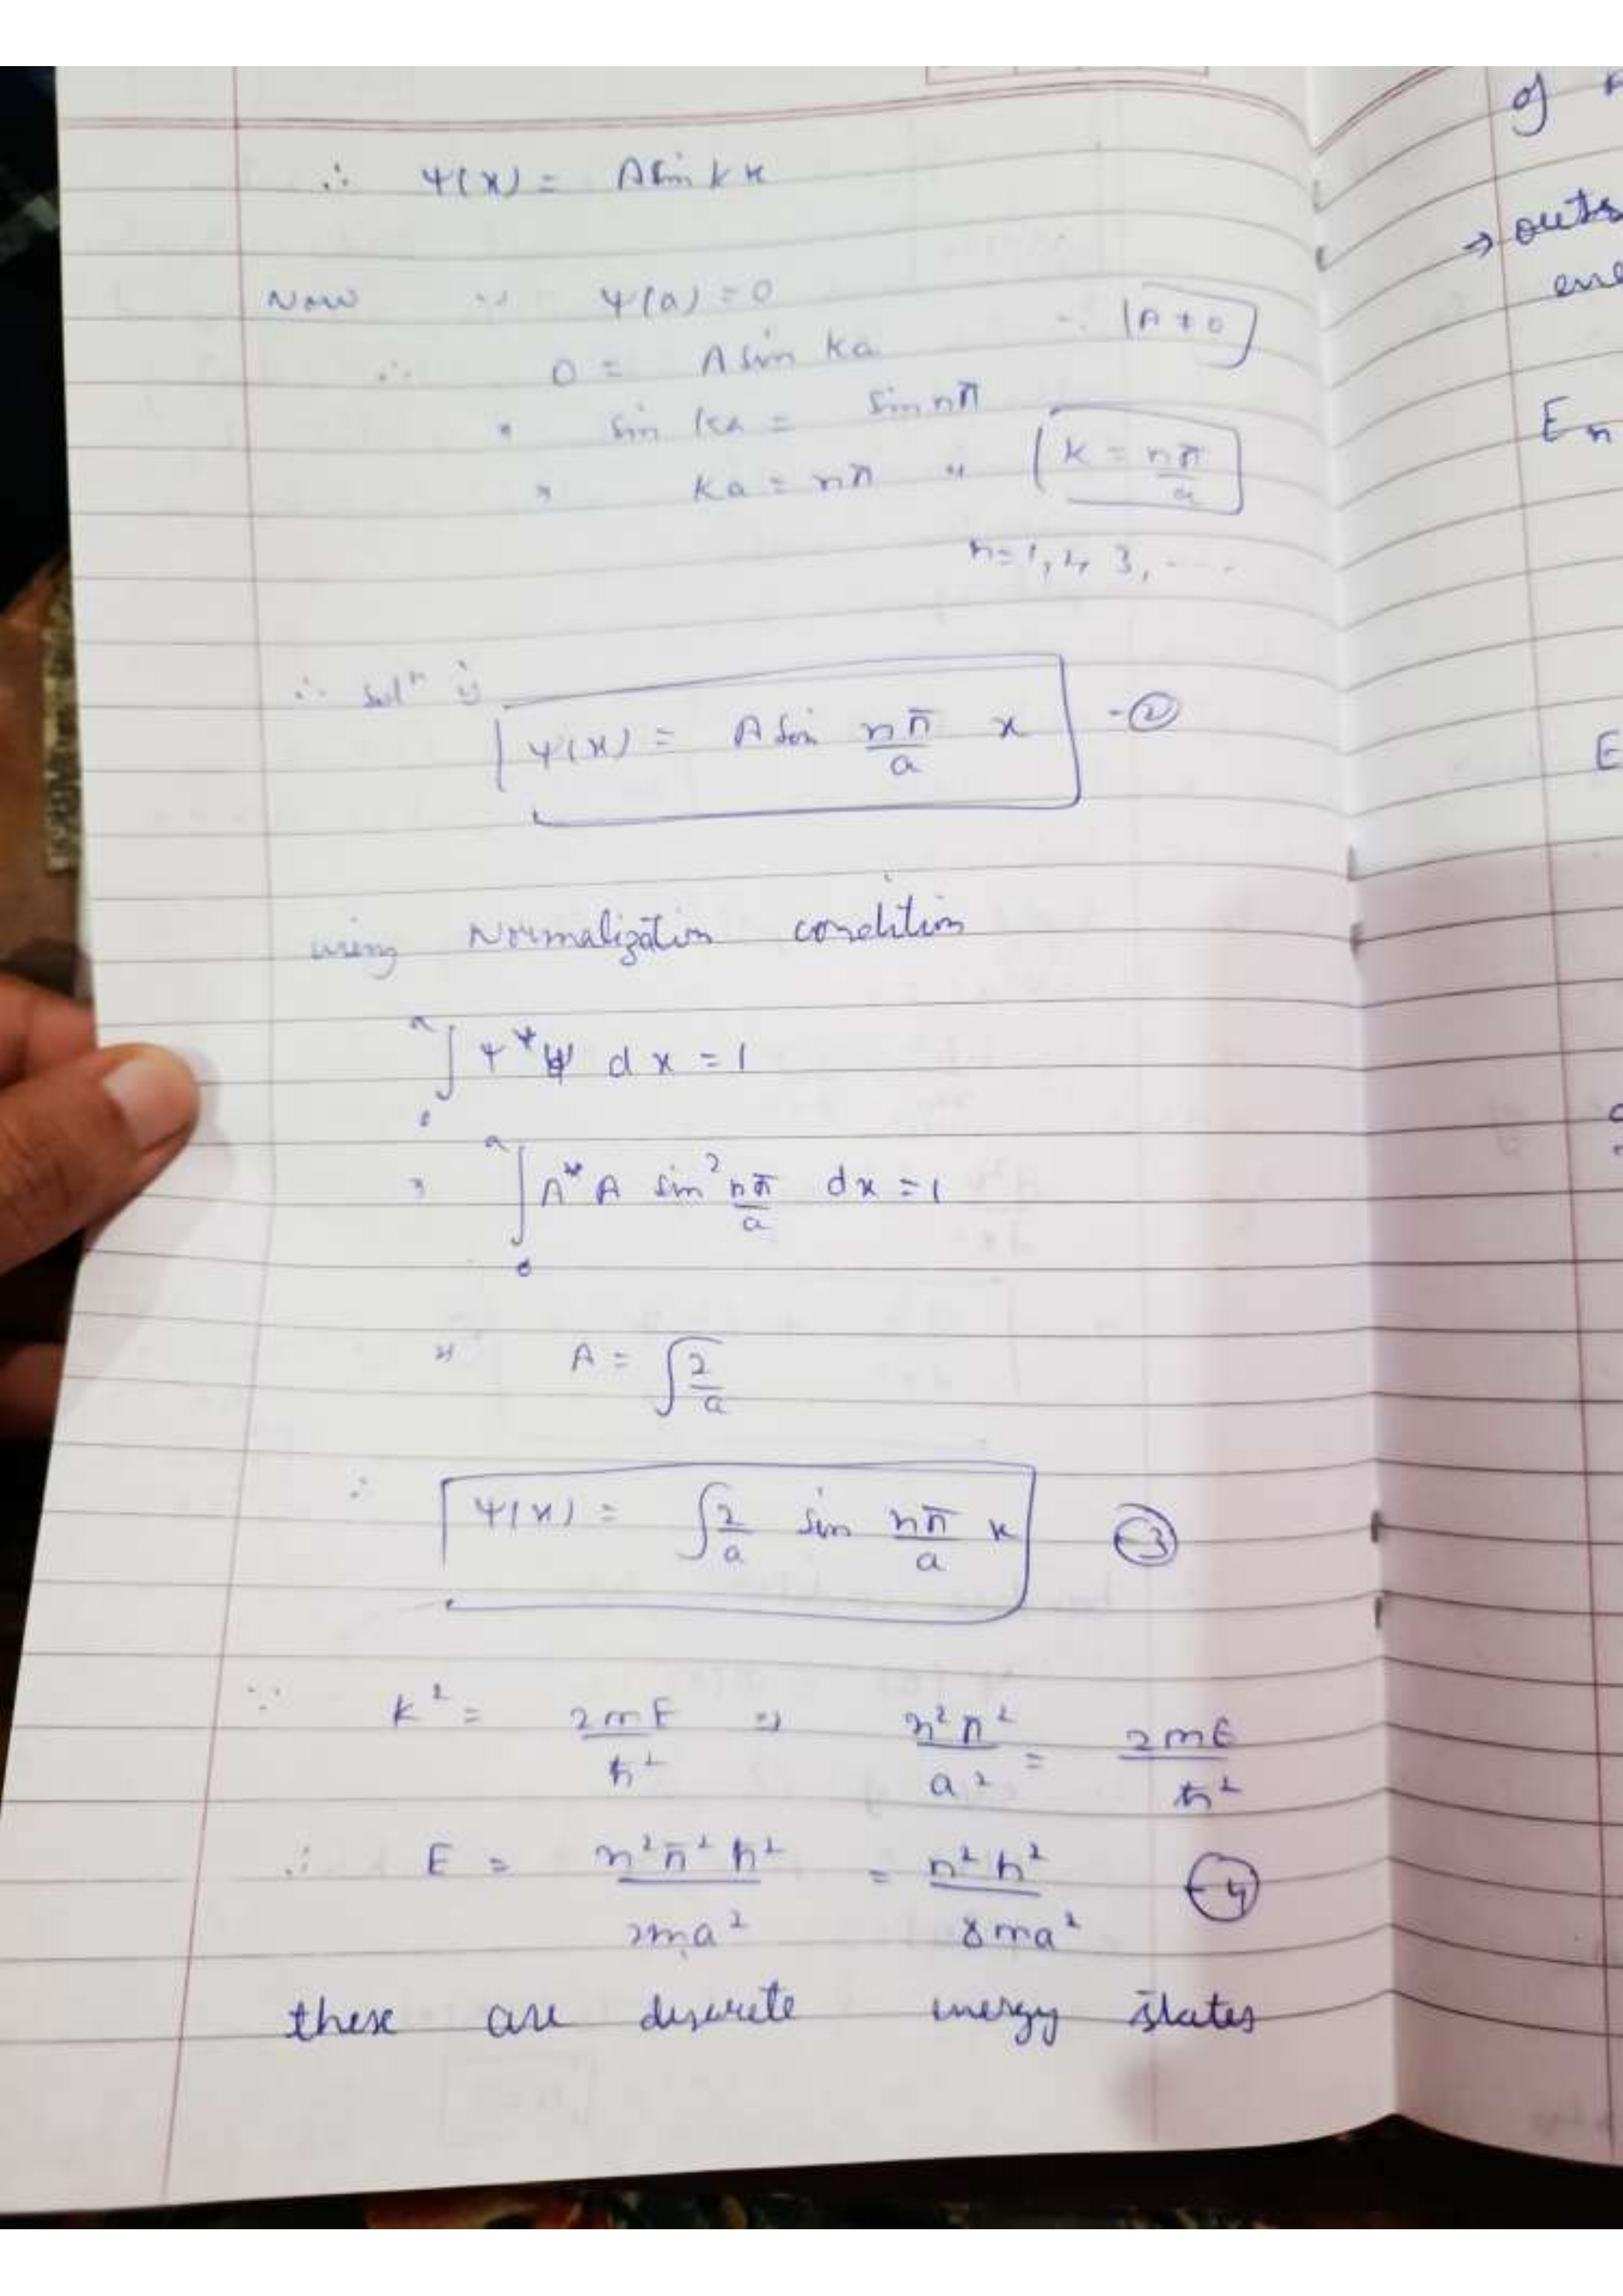 ∴ ψ(x) = A sin kx
Now ∵ ψ(a) = 0
∴ 0 = A sin Ka ∵ A ≠ 0
⇒ sin ka = sin nπ
⇒ Ka = nπ ⇒ k = nπ/a
n = 1, 2, 3, ----
∴ solⁿ is
ψ(x) = A sin nπ/a x -②
using Normalization condition
∫₀ᵃ ψ*ψ dx = 1
⇒ ∫₀ᵃ A*A sin² nπ/a dx = 1
⇒ A = √2/a
∴ ψ(x) = √2/a sin nπ/a x -③
∵ k² = 2mE/ħ² ⇒ n²π²/a² = 2mE/ħ²
∴ E = n²π²ħ²/2ma² = n²h²/8ma² -④
these are discrete energy states
of
⇒ outs
ene
En
E